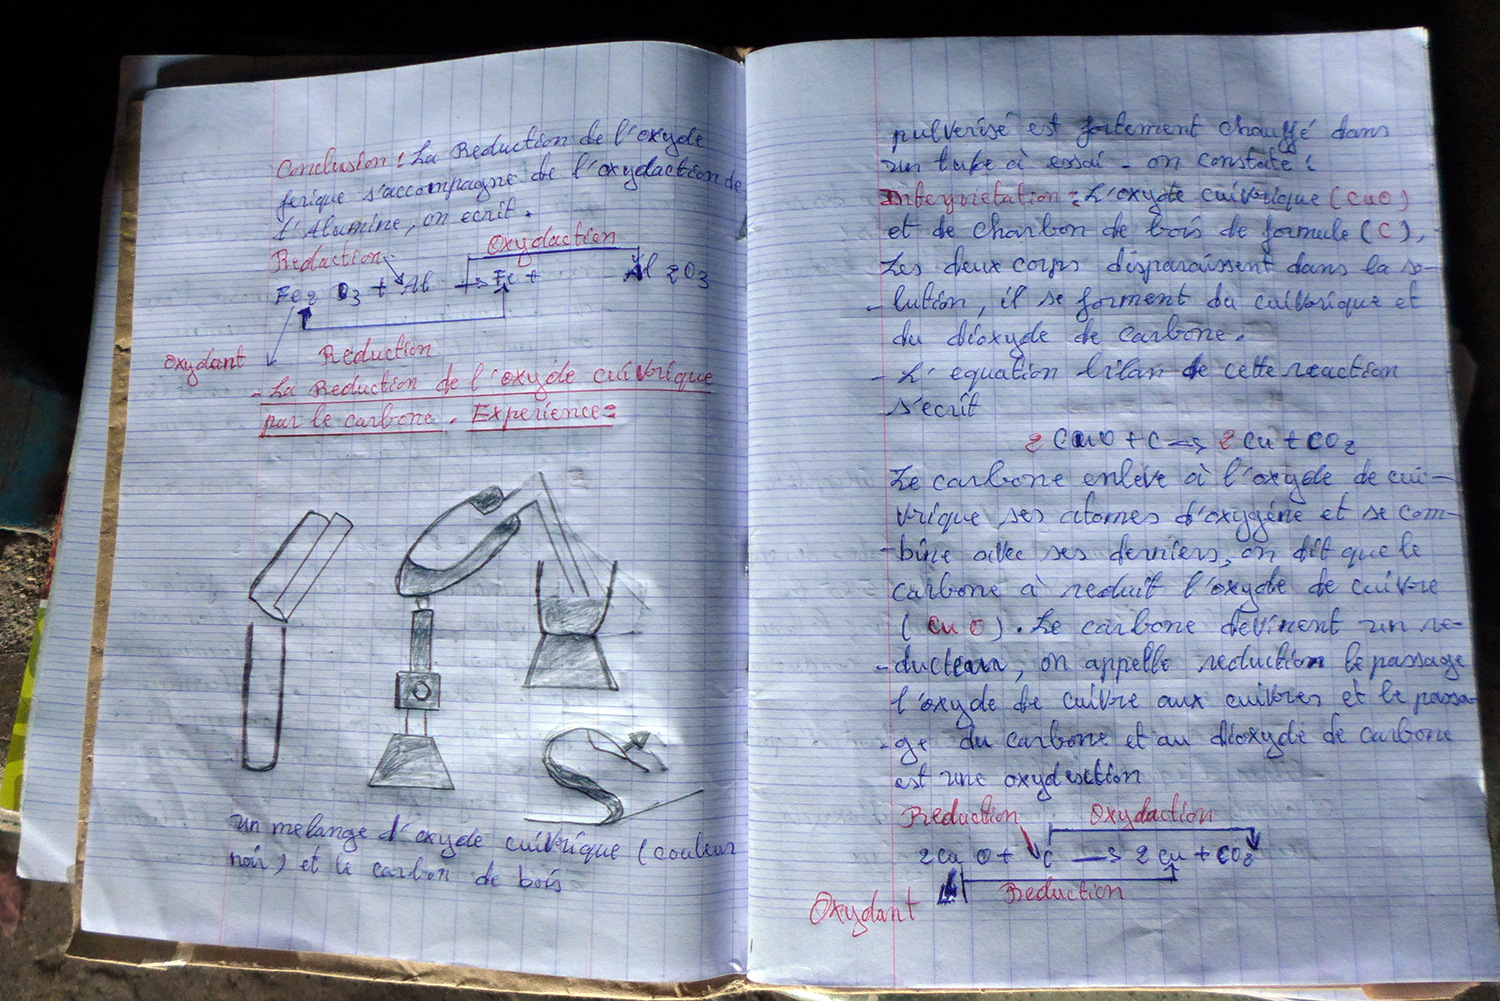 Conclusion : La Reduction de l'oxyde
ferique s'accompagne de l'oxydaction de
l'Alumine, on ecrit.
Oxydaction
Reduction
Fe2 O3 + Al → Fe + Al2O3
Oxydant
Reduction
- La Reduction de l'oxyde cuivrique
par le carbone. Experience :
un melange d'oxyde cuivrique (couleur
noir) et le carbon de bois
pulverisé est fortement chauffé dans
un tube à essai - on constate :
Interpretation : L'oxyde cuivrique (CuO)
et de charbon de bois de formule (C),
Les deux corps disparaissent dans la so-
- lution, il se forment du cuivrique et
du dioxyde de carbone.
- L'equation bilan de cette reaction
s'ecrit
2 CuO + C → 2 Cu + CO2
Le carbone enlève à l'oxyde de cui-
vrique ses atomes d'oxygène et se com-
- bine avec ses derniers, on dit que le
carbone à reduit l'oxyde de cuivre
( CuO ). Le carbone devinent un re-
- ducteur, on appelle reduction le passage
l'oxyde de cuivre aux cuivres et le passa-
- ge du carbone et au dioxyde de carbone
est une oxydaction
Reduction Oxydaction
2Cu O + C → 2 Cu + CO2
Reduction
Oxydant